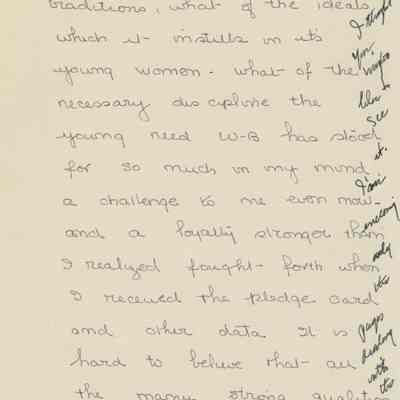 traditions, what of the ideals,
which it instills in its
young women - what of the
necessary discipline the
young need W-B has stood
for so much in my mind
a challenge to me even now -
and a loyalty stronger than
I realized fought forth when
I received the pledge card
and other data It is
hard to believe that all
the many strong qualities
I thought
you
might
like to
see
it.
I am
enclosing
only
the
pages
dealing
with
the